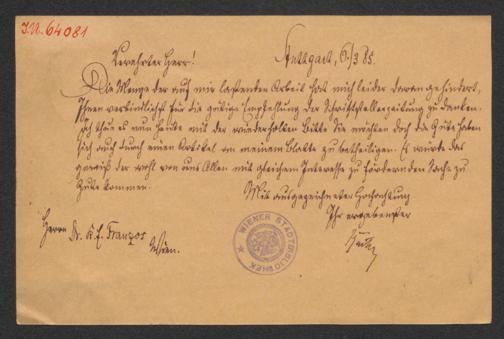 I.N. 64081
Verehrter Herr! Stuttgart, 6/3 85.
Die Menge der auf mir lastenden Arbeit hat mich leider daran gehindert,
Ihnen verbindlichst für die gütige Empfehlung der Schriftstellerzeitung zu danken.
Ich thue es nun heute mit der wiederholten Bitte Sie möchten doch die Güte haben
sich auch durch einen Artikel an meinem Blatte zu betheiligen. Es würde das
gewiß der wohl von uns Allen mit gleichem Interesse zu fördernden Sache zu
Gute kommen.
Mit ausgezeichneter Hochachtung
Ihr ergebenster
Herrn Dr. K. E. Franzos
Wien.
WIENER STADTBIBLIOTHEK